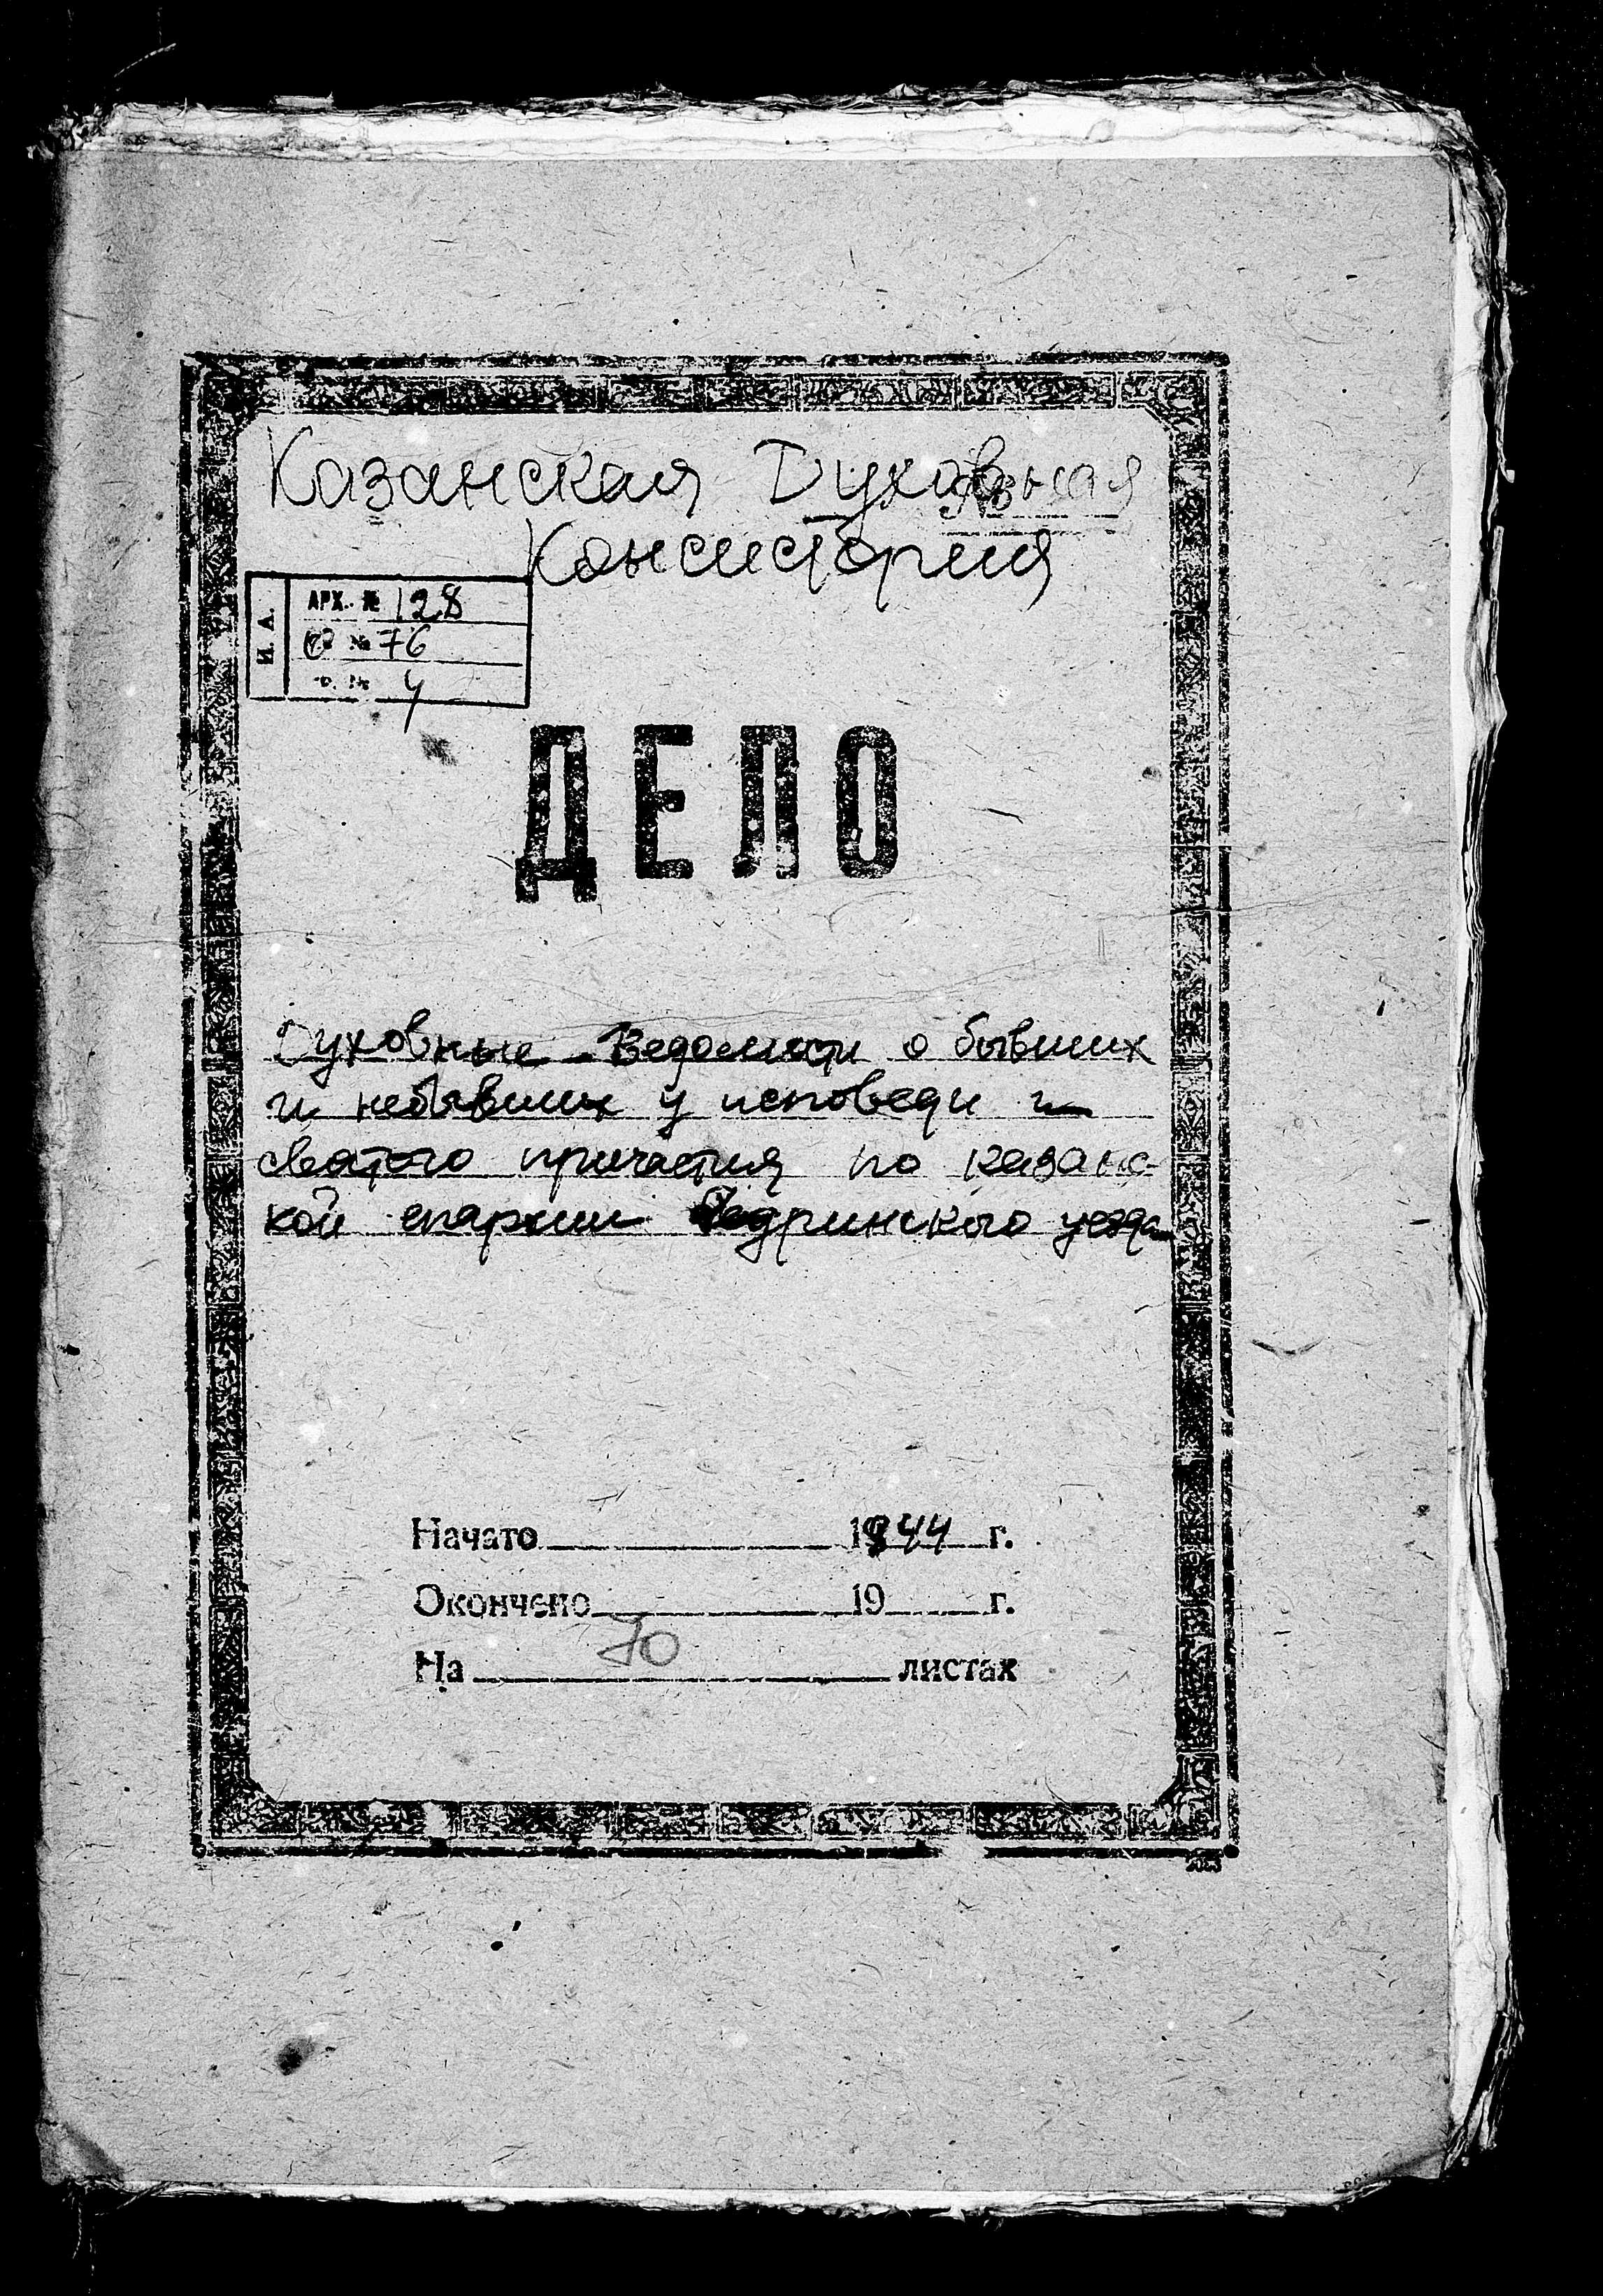 Казанская Духовная
Консистория
И. А.
АРХ. № 128
№ 76
№ 4
ДЕЛО
Духовные Ведомости о бывших
и небывших у исповеди и
святого причастия по казанс-
кой епархии Ядринского уезда
Начато 1844 г.
Окончено 19 г.
На 70 листах